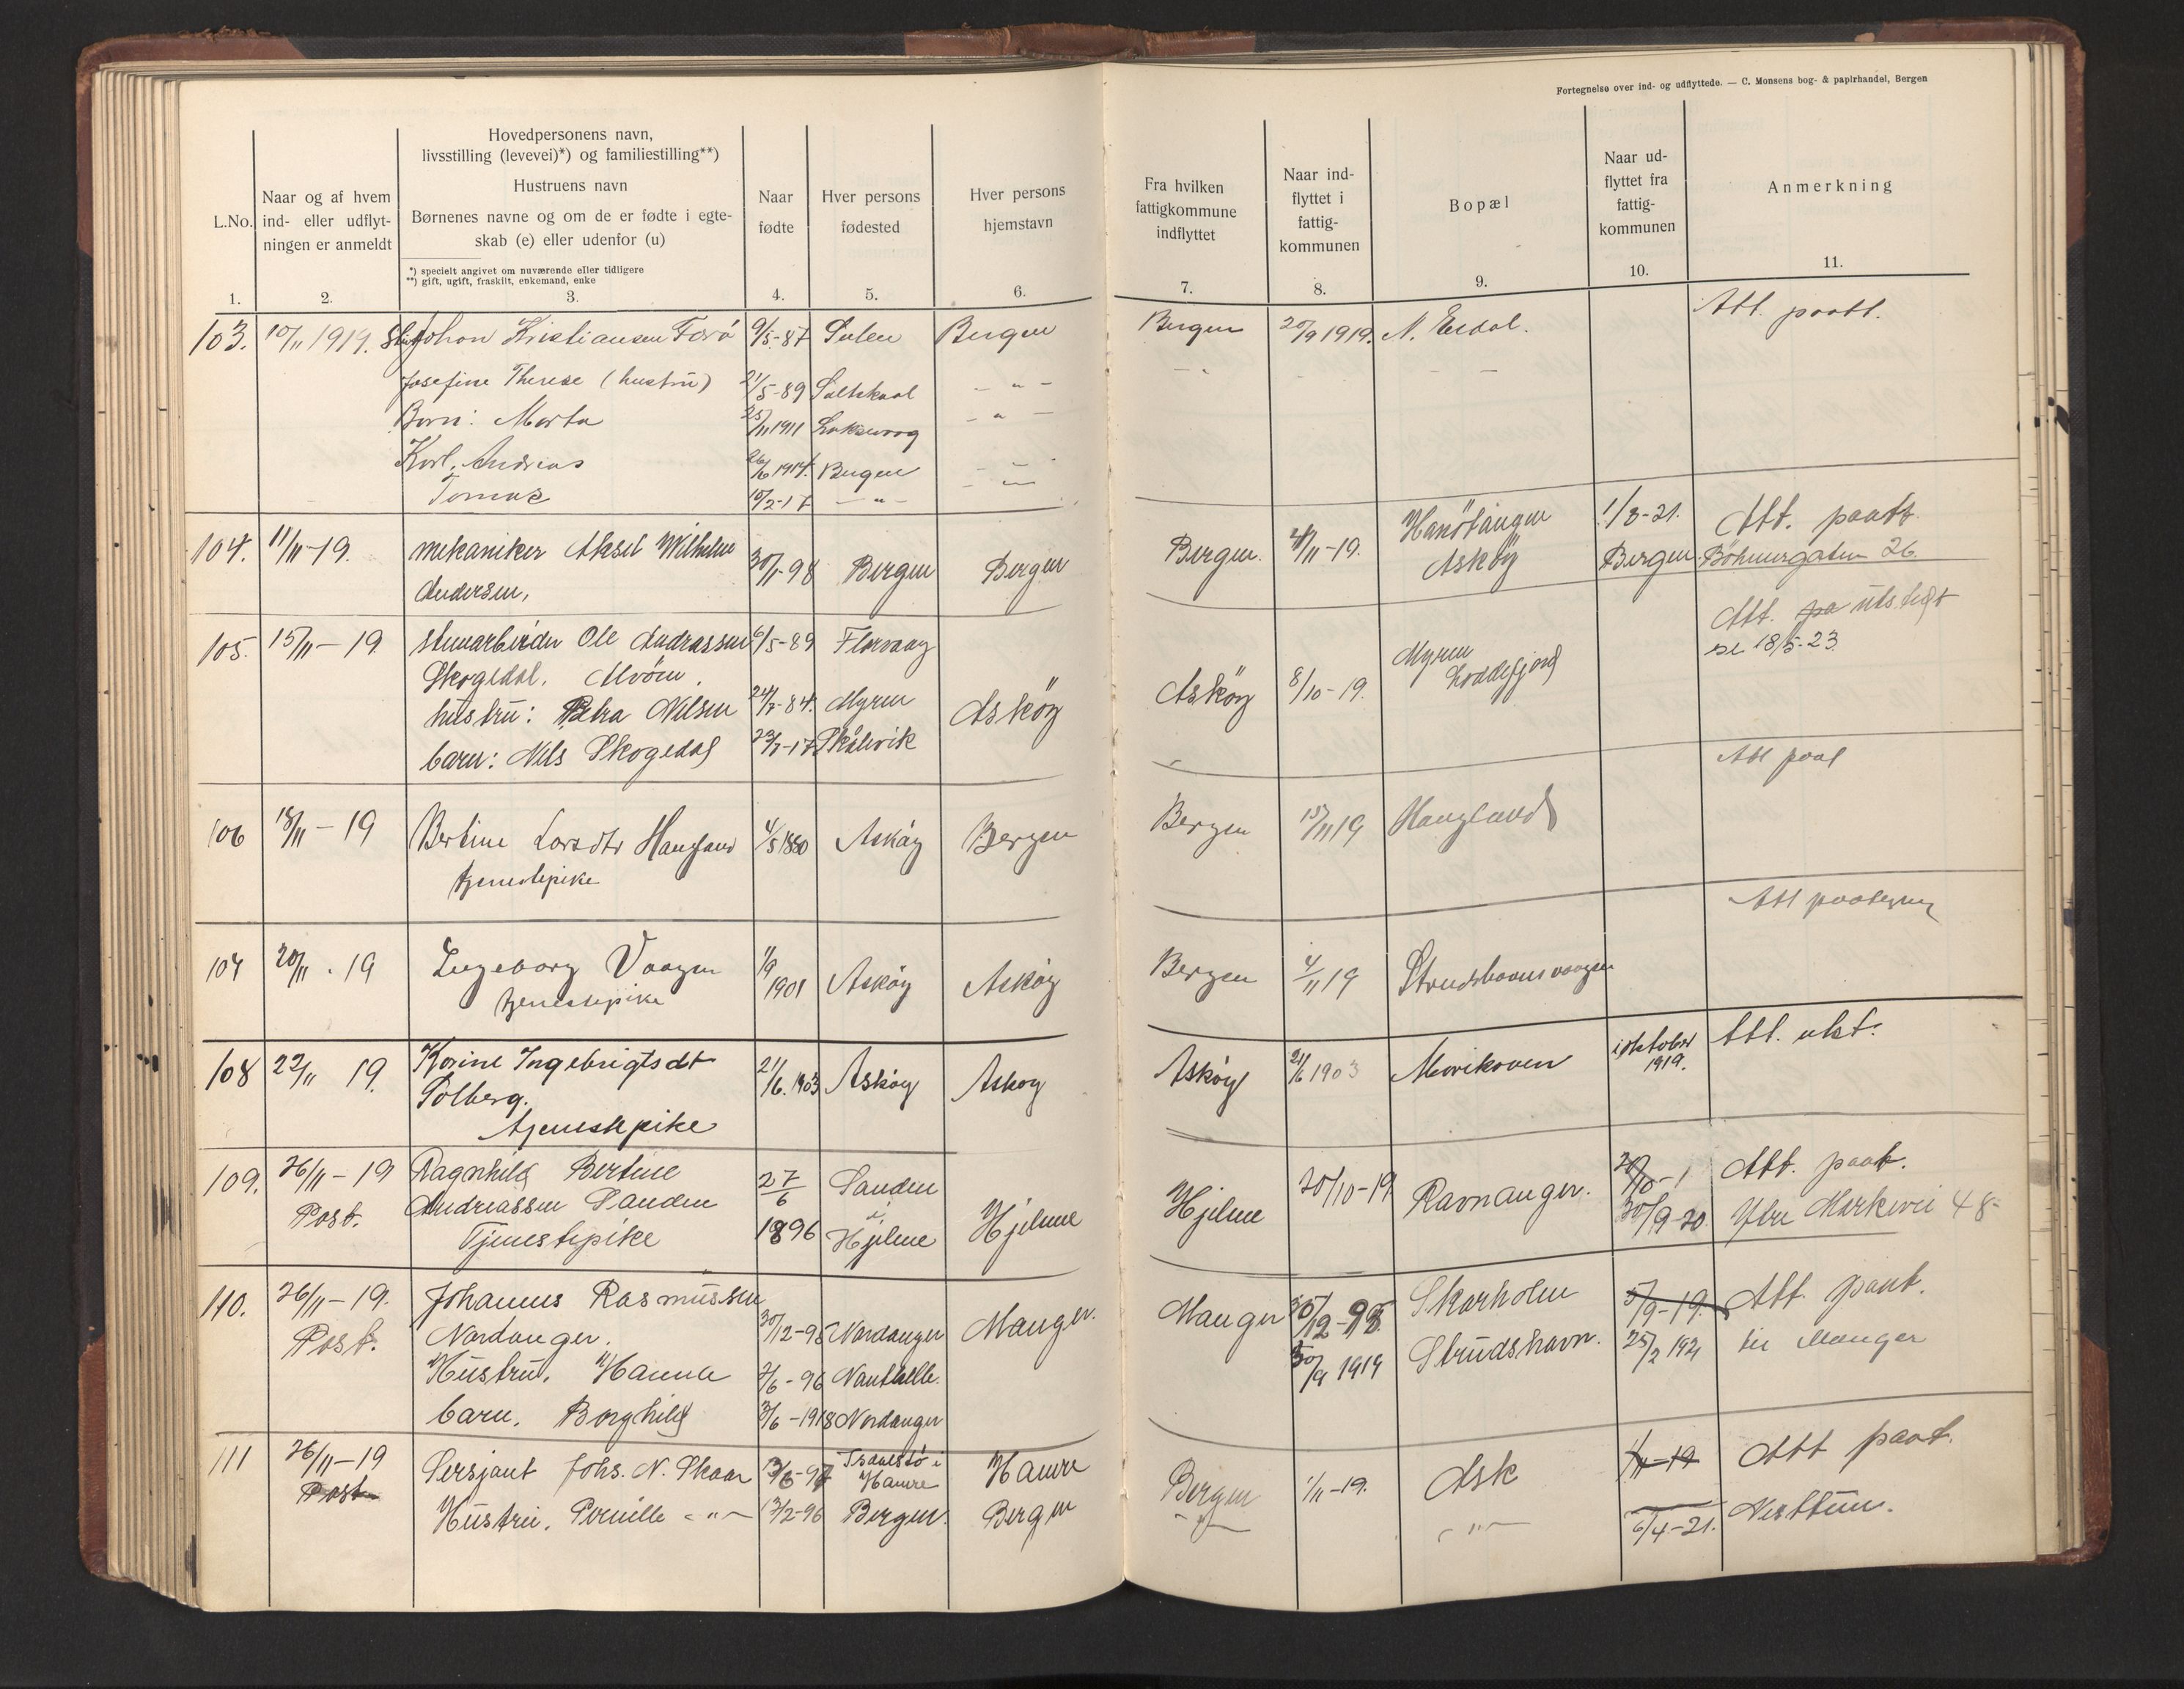 Fortegnelse over ind- og udflyttede. — C. Monsens bog- & papirhandel, Bergen
L.No.
1.
Naar og af hvem
ind- eller udflyt-
ningen er anmeldt
2.
Hovedpersonens navn,
livsstilling (levevei)*) og familiestilling**)
Hustruens navn
Børnenes navne og om de er fødte i egte-
skab (e) eller udenfor (u)
*) specielt angivet om nuværende eller tidligere
**) gift, ugift, fraskilt, enkemand, enke
3.
Naar
fødte
4.
Hver persons
fødested
5.
Hver persons
hjemstavn
6.
Fra hvilken
fattigkommune
indflyttet
7.
Naar ind-
flyttet i
fattig-
kommunen
8.
Bopæl
9.
Naar ud-
flyttet fra
fattig-
kommunen
10.
Anmerkning
11.
103. 10/11 1919. Johan Kristiansen 9/5-87 Sulen Bergen Bergen 20/9 1919. N. Erdal. Att. paatt.
Josefine Therese (hustru) 21/5-89 — " —
Barn: Marta 25/11 1911 Laksevaag — " —
Karl. Andreas 26/6 1914. Bergen — " —
Tomas 10/2-17 — " —
104. 11/11-19. mekaniker Aksel Wilhelm 30/1-98 Bergen Bergen Bergen. 4/11-19. Hanötangen 1/8-21. Att. paatt
Andersen, Asköy Bergen. Böhmergaten 26.
105. 15/11-19. stenarbeider Ole Andrassen 6/5-89 Florvaag Att. pa utstedt
Skogedal. Alvöen. Myren se 18/5-23.
hustru: Petra Nilsen 24/7-84. Myren Asköy Asköy 8/10-19. Loddefjord
barn: Nils Skogedal 23/7-17 Skålevik
106 18/11-19 Bertine Larsdtr Haugland 4/5 1880 Asköy Bergen Bergen 15/11 19 Haugland Att paat
tjenestepike
107 20/11.19 Ingeborg Vaagen 11/9 1901 Asköy Asköy Bergen 4/11 19 Strudshavnsvaagen Att paategn
tjenestepike
108 22/11 19. Karine Ingebrigtsdt 21/6.1903 Asköy Askoy Asköy 21/6 1903 i oktober 1919. Att. utst.
Solberg.
tjenestepike
109. 26/11-19 Ragnhild Bertine 27/6 Sanden Hjelme Hjelme 20/10-19 Ravnanger. Att. paat.
Post. Andreassen Sanden 1896 i Hjelme 30/9-20. Ytre Markevei 48-
Tjenestepike
110. 26/11-19. Johannes Rasmussen 30/12-98 Nordanger Manger. Manger 30/12-98 Skarholm 5/9-19. Att. paat.
Post. Nordanger. 30/9 1919 Strudshavn. 25/2 1921 til Manger
Hustru. Hanna 7/6-96
barn. Borghild 3/6-1918 Nordanger
111 26/11-19 Sersjant Johs. N. Skaar Hamre Hamre Bergen 1/11-19. Ask 1/11-19 Att paat.
Post Hustru. Pernille — " — 13/2-96 Bergen. Bergen — " — — " — 6/4-21. Nesttun.